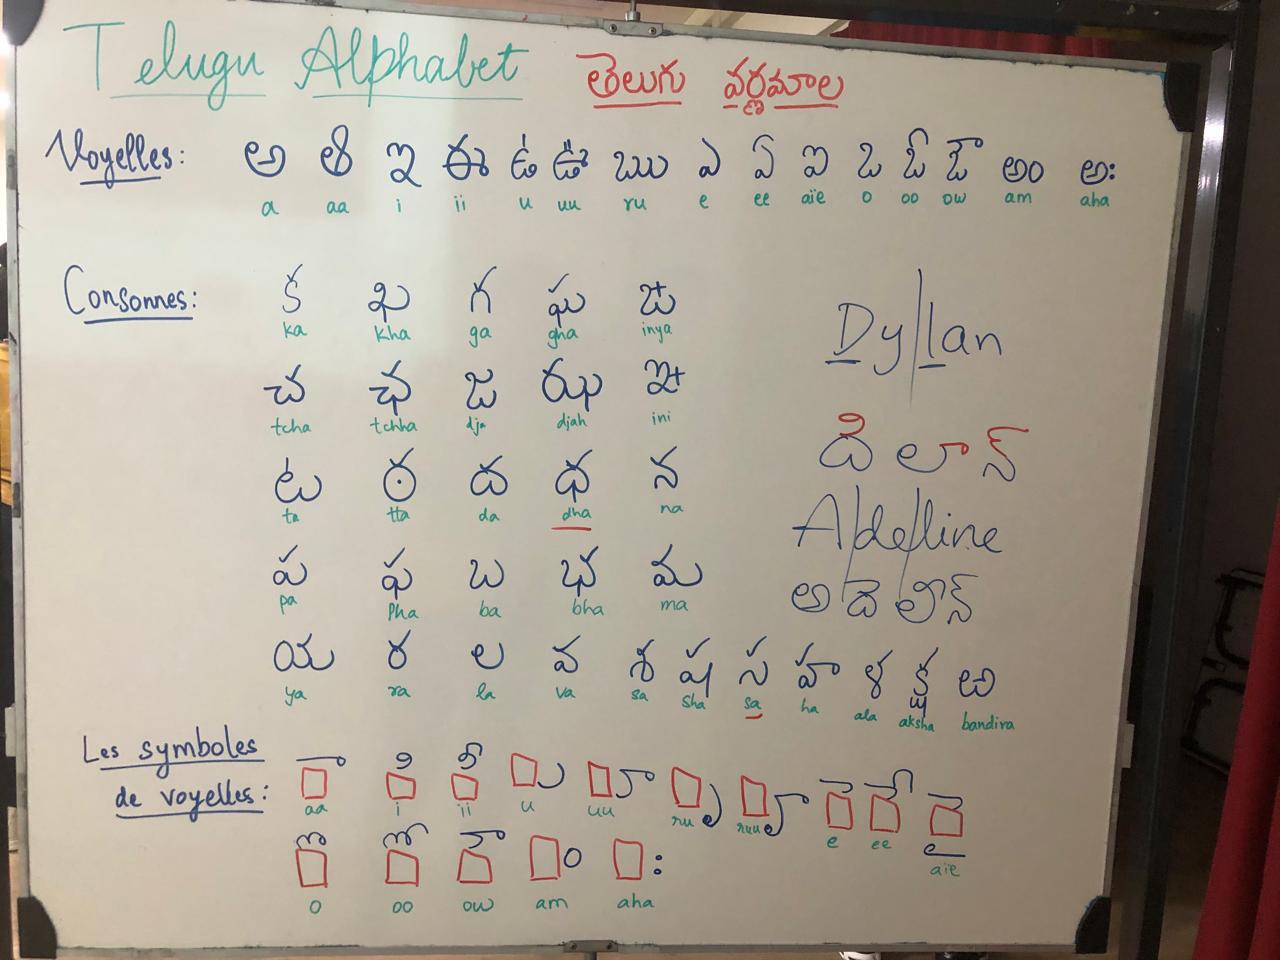 Telugu Alphabet తెలుగు వర్ణమాల
Voyelles: అ ఆ ఇ ఈ ఉ ఊ ఋ ఎ ఏ ఐ ఒ ఓ ఔ అం అః
a aa i ii u uu ru e ee aïe o oo ow am aha
Consonnes: క ఖ గ ఘ ఙ
ka kha ga gha inya
చ ఛ జ ఝ ఞ
tcha tchha dja djah ini
ట ఠ ద ధ న
ta tta da dha na
ప ఫ బ భ మ
pa pha ba bha ma
య ర ల వ శ ష స హ ళ క్ష ఱ
ya ra la va sa sha sa ha ala aksha bandira
Dyllan
దిలాన్
Adeline
అదెలీన్
Les symboles
de voyelles:
ా ి ీ ు ూ ృ ౄ ె ే ై
aa i ii u uu ru ruu e ee aïe
ొ ో ౌ ం ః
o oo ow am aha